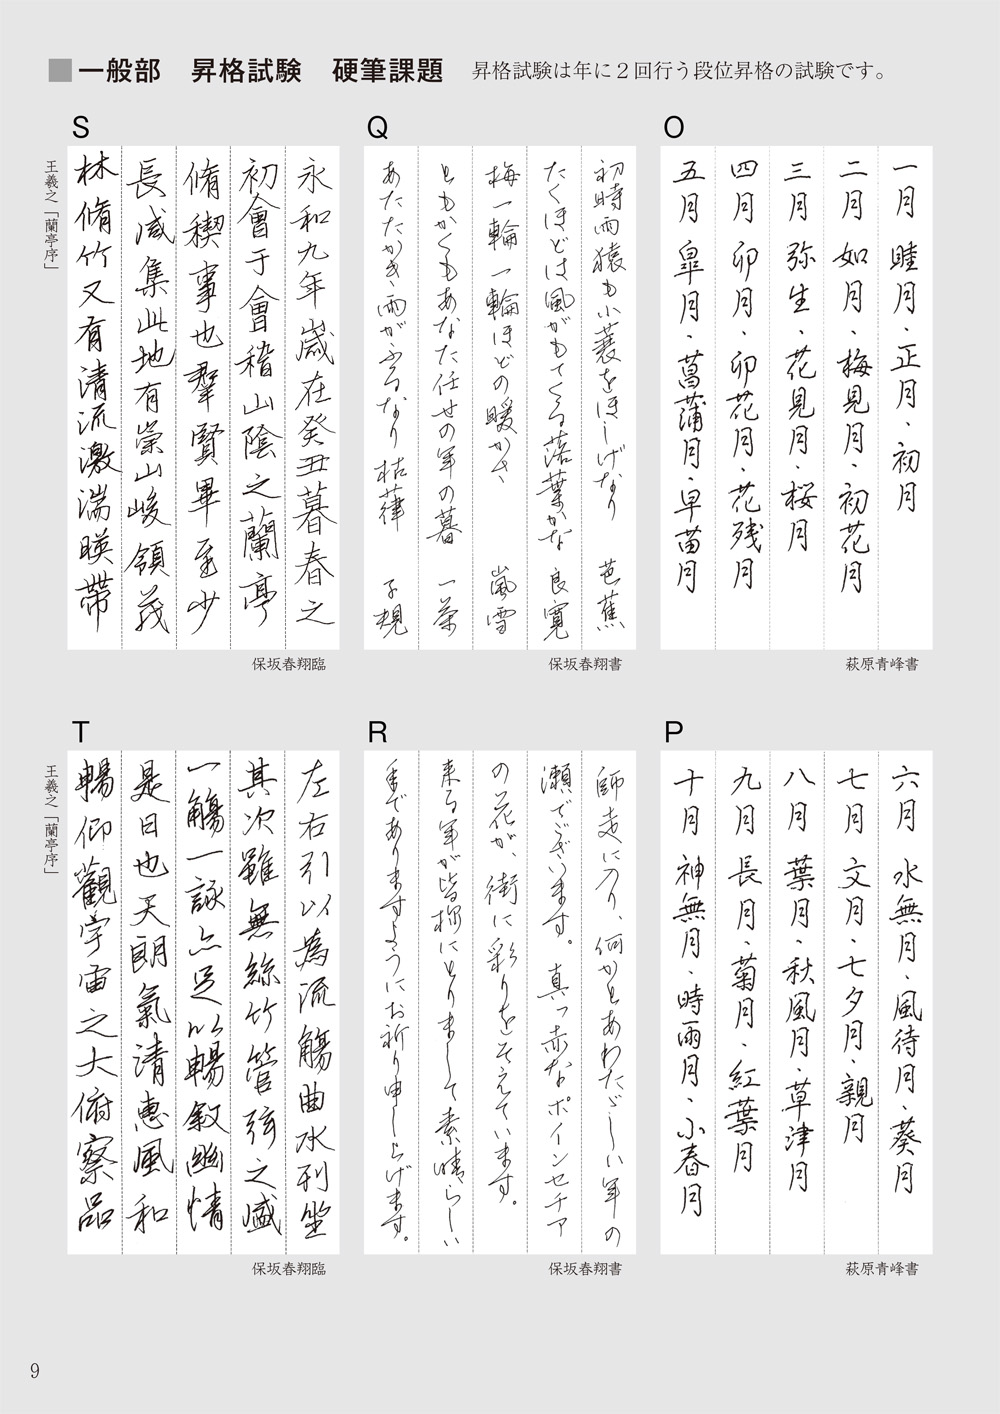 一般部　昇格試験　硬筆課題　昇格試験は年に２回行う段位昇格の試験です。
O
一月　睦月・正月・初月
二月　如月・梅見月・初花月
三月　弥生・花見月・桜月
四月　卯月・卯花月・花残月
五月　皐月・菖蒲月・早苗月
萩原青峰書
Q
初時雨猿も小蓑をほしげなり　芭蕉
たくほどは風がもてくる落葉かな　良寛
梅一輪一輪ほどの暖かさ　嵐雪
ともかくもあなた任せの年の暮　一茶
あたたかき雨がふるなり枯葎　子規
保坂春翔書
S
永和九年歳在癸丑暮春之
初會于會稽山陰之蘭亭
脩稧事也羣賢畢至少
長咸集此地有崇山峻領茂
林脩竹又有清流激湍暎帶
王羲之「蘭亭序」
保坂春翔臨
P
六月　水無月・風待月・葵月
七月　文月・七夕月・親月
八月　葉月・秋風月・草津月
九月　長月・菊月・紅葉月
十月　神無月・時雨月・小春月
萩原青峰書
R
師走に入り、何かとあわただしい年の
瀬でございます。真っ赤なポインセチア
の花が、街に彩りをそえています。
来る年が皆様にとりまして素晴らしい
年でありますようにお祈り申し上げます。
保坂春翔書
T
左右引以為流觴曲水列坐
其次雖無絲竹管弦之盛
一觴一詠亦足以暢敘幽情
是日也天朗氣清惠風和
暢仰觀宇宙之大俯察品
王羲之「蘭亭序」
保坂春翔臨
9